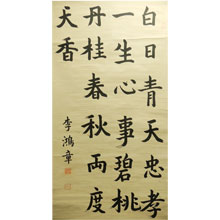 白日青天忠孝
一生心事碧桃
丹桂春秋兩度
天香
李鴻章